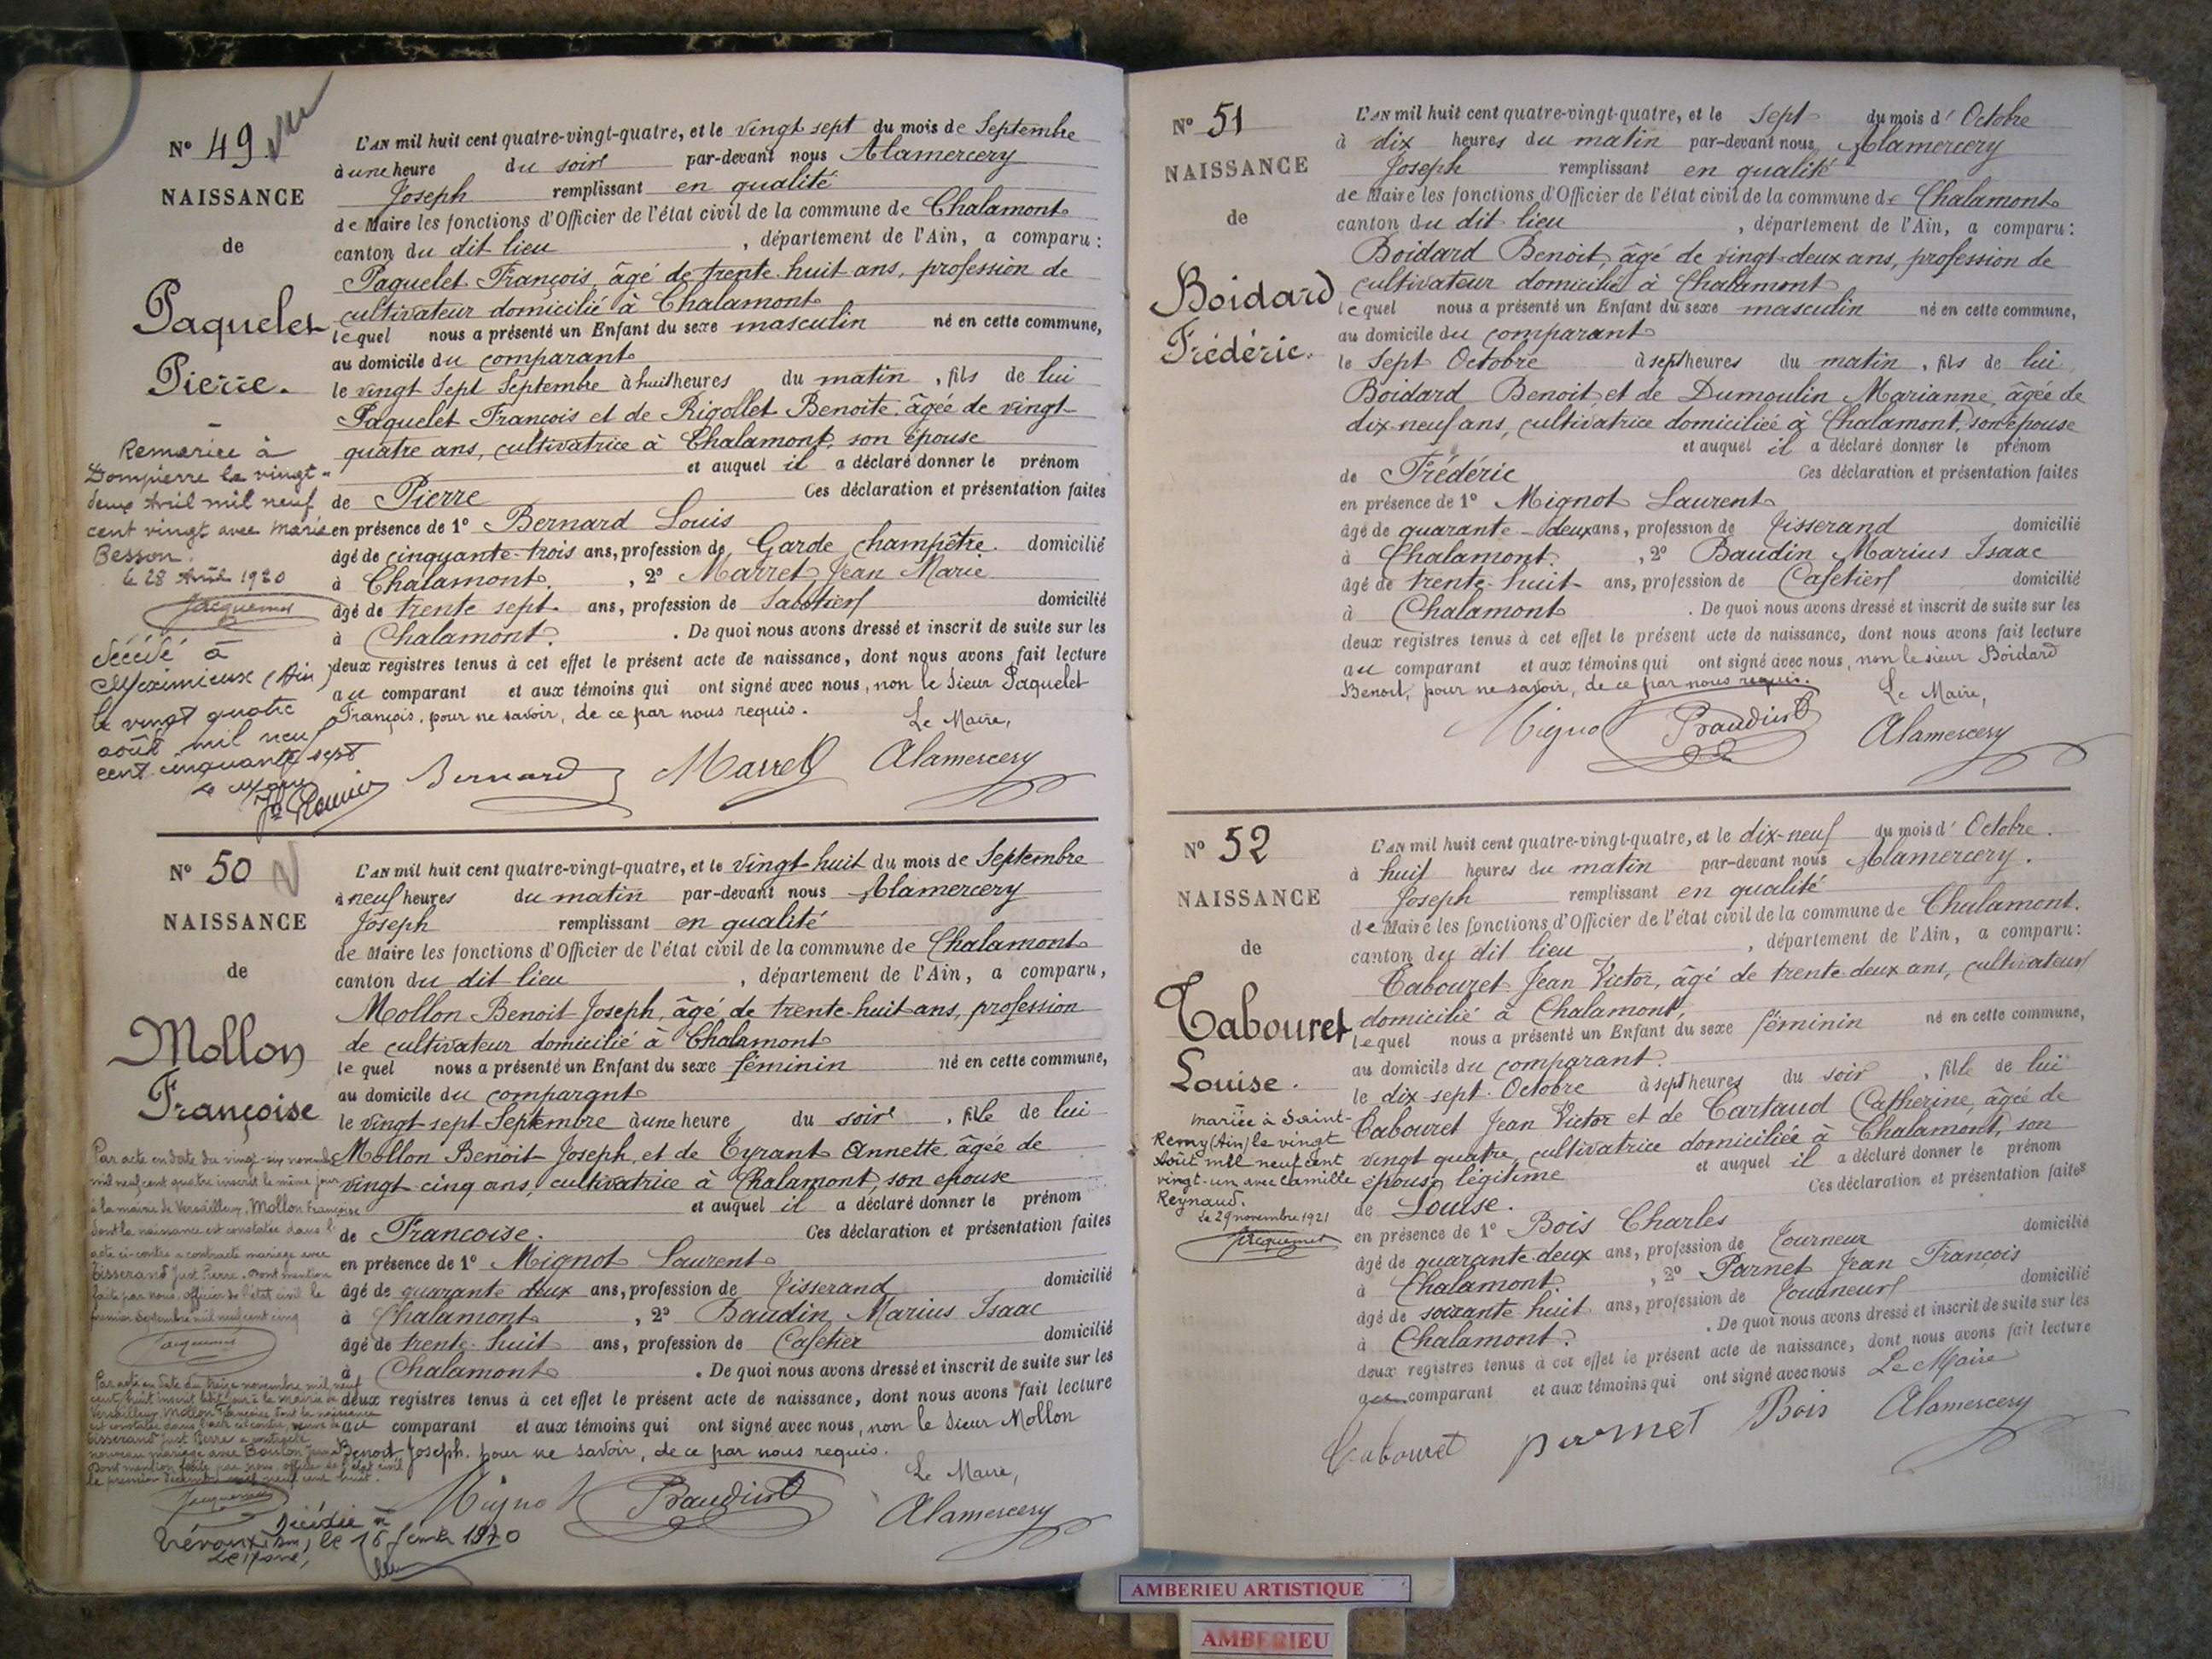 N° 49
NAISSANCE
de
Paquelet
Pierre.
Remariée à
Dompierre le vingt-
deux Avril mil neuf
cent vingt avec Marie
Besson.
le 28 Avril 1920
Jacquemet
décédé à
Meximieux (Ain)
le vingt quatre
août mil neuf
cent cinquante sept
Le Maire
L'AN mil huit cent quatre-vingt-quatre, et le vingt sept du mois de Septembre
à une heure du soir par-devant nous Alamercery
Joseph remplissant en qualité
de Maire les fonctions d'Officier de l'état civil de la commune de Chalamont
canton du dit lieu , département de l'Ain, a comparu :
Paquelet François, âgé de trente-huit ans, profession de
cultivateur domicilié à Chalamont
lequel nous a présenté un Enfant du sexe masculin né en cette commune,
au domicile du comparant
le vingt Sept Septembre à huit heures du matin , fils de lui
Paquelet François et de Rigollet Benoite, âgée de vingt-
quatre ans, cultivatrice à Chalamont, son épouse
et auquel il a déclaré donner le prénom
de Pierre Ces déclaration et présentation faites
en présence de 1° Bernard Louis
âgé de cinquante-trois ans, profession de Garde champêtre. domicilié
à Chalamont. , 2° Marret Jean Marie
âgé de trente sept. ans, profession de Sabotier domicilié
à Chalamont. . De quoi nous avons dressé et inscrit de suite sur les
deux registres tenus à cet effet le présent acte de naissance, dont nous avons fait lecture
au comparant et aux témoins qui ont signé avec nous, non le Sieur Paquelet
François, pour ne savoir, de ce par nous requis.
Le Maire,
Bernard Marret Alamercery
N° 50
NAISSANCE
de
Mollon
Françoise
Par acte en date du vingt-six novembre
mil neuf cent quatre inscrit le même jour
à la mairie de Versailleux, Mollon Françoise
dont la naissance est constatée dans l'
acte ci-contre a contracté mariage avec
Tisserand Just Pierre. Dont mention
faite par nous, officier de l'état civil le
premier Septembre mil neuf cent cinq
Jacquemet
Par acte en date du treize novembre mil neuf
cent huit inscrit le dit jour à la mairie de
Versailleux, Mollon Françoise dont la naissance
est constatée dans l'acte ci-contre, veuve de
Tisserand Just Pierre a contracté
nouveau mariage avec Boulon
Dont mention faite par nous officier de l'état civil
le premier mil neuf cent huit.
Jacquemet
Décédée à
Trévoux (Ain), le 16 février 1970
Le Maire,
L'AN mil huit cent quatre-vingt-quatre, et le vingt-huit du mois de Septembre
à neuf heures du matin par-devant nous Alamercery
Joseph remplissant en qualité
de Maire les fonctions d'Officier de l'état civil de la commune de Chalamont
canton du dit lieu , département de l'Ain, a comparu,
Mollon Benoit-Joseph, âgé de trente-huit ans, profession
de cultivateur domicilié à Chalamont
lequel nous a présenté un Enfant du sexe féminin né en cette commune,
au domicile du comparant
le vingt-sept Septembre à une heure du soir , fille de lui
Mollon Benoit-Joseph, et de Tyrant Annette, âgée de
vingt-cinq ans, cultivatrice à Chalamont, son épouse
et auquel il a déclaré donner le prénom
de Françoise. Ces déclaration et présentation faites
en présence de 1° Mignot Laurent
âgé de quarante deux ans, profession de Tisserand domicilié
à Chalamont , 2° Baudin Marius Isaac
âgé de trente-huit ans, profession de Cafetier domicilié
à Chalamont . De quoi nous avons dressé et inscrit de suite sur les
deux registres tenus à cet effet le présent acte de naissance, dont nous avons fait lecture
au comparant et aux témoins qui ont signé avec nous, non le Sieur Mollon
Benoit-Joseph. pour ne savoir, de ce par nous requis.
Le Maire,
Mignot Baudin Alamercery
N° 51
NAISSANCE
de
Boidard
Frédéric.
L'AN mil huit cent quatre-vingt-quatre, et le Sept du mois d' Octobre
à dix heures du matin par-devant nous Alamercery
Joseph remplissant en qualité
de Maire les fonctions d'Officier de l'état civil de la commune de Chalamont
canton du dit lieu , département de l'Ain, a comparu :
Boidard Benoit, âgé de vingt-deux ans, profession de
cultivateur domicilié à Chalamont
lequel nous a présenté un Enfant du sexe masculin né en cette commune,
au domicile du comparant
le Sept Octobre à sept heures du matin , fils de lui
Boidard Benoit et de Dumoulin Marianne, âgée de
dix-neuf ans, cultivatrice domiciliée à Chalamont, son épouse
et auquel il a déclaré donner le prénom
de Frédéric Ces déclaration et présentation faites
en présence de 1° Mignot Laurent
âgé de quarante-deux ans, profession de Tisserand domicilié
à Chalamont. , 2° Baudin Marius Isaac
âgé de trente-huit ans, profession de Cafetier domicilié
à Chalamont . De quoi nous avons dressé et inscrit de suite sur les
deux registres tenus à cet effet le présent acte de naissance, dont nous avons fait lecture
au comparant et aux témoins qui ont signé avec nous, non le sieur Boidard
Benoit, pour ne savoir, de ce par nous requis.
Le Maire,
Mignot Baudin Alamercery
N° 52
NAISSANCE
de
Tabouret
Louise.
Mariée à Saint-
Remy (Ain) le vingt
Août mil neuf cent
vingt-un avec Camille
Reynaud.
le 29 novembre 1921
Jacquemet
L'AN mil huit cent quatre-vingt-quatre, et le dix-neuf du mois d' Octobre.
à huit heures du matin par-devant nous Alamercery.
Joseph remplissant en qualité
de Maire les fonctions d'Officier de l'état civil de la commune de Chalamont.
canton du dit lieu , département de l'Ain, a comparu :
Tabouret Jean Victor, âgé de trente-deux ans, cultivateur
domicilié à Chalamont,
lequel nous a présenté un Enfant du sexe féminin né en cette commune,
au domicile du comparant.
le dix-sept. Octobre à sept heures du soir , fille de lui
Tabouret Jean Victor et de Cartaud Catherine, âgée de
vingt quatre, cultivatrice domiciliée à Chalamont, son
épouse légitime et auquel il a déclaré donner le prénom
de Louise. Ces déclaration et présentation faites
en présence de 1° Bois Charles
âgé de quarante-deux ans, profession de Tourneur domicilié
à Chalamont. , 2° Parnet Jean François
âgé de soixante-huit ans, profession de Tourneur domicilié
à Chalamont. . De quoi nous avons dressé et inscrit de suite sur les
deux registres tenus à cet effet le présent acte de naissance, dont nous avons fait lecture
au comparant et aux témoins qui ont signé avec nous Le Maire
Tabouret parnet Bois Alamercery
AMBERIEU ARTISTIQUE
AMBERIEU